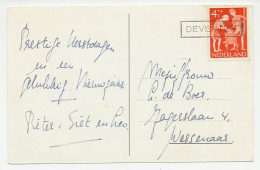 Prettige Kerstdagen
en een
gelukkig Nieuwjaar
Pieter, Siet en Leo
DEVE
4
NEDERLAND
Mejuffrouw
C. de Boer
Jagerslaan 4.
Wassenaar